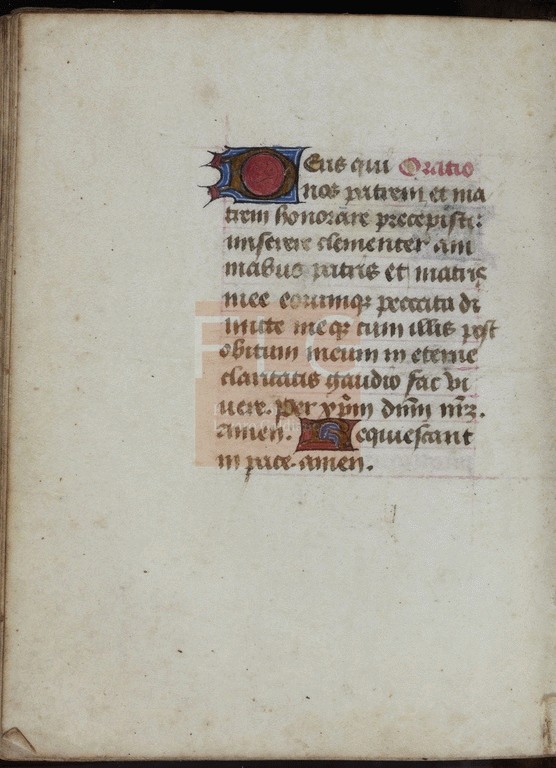 Deus qui Oratio
nos patrem et ma
trem honorare precepisti:
miserere clementer ani
mabus patris et matris
mee eorumq; peccata di
mitte meq; cum illis post
obitum meum in eterne
claritatis gaudio fac vi
uere. Per xp̄m dn̄m nr̄m.
amen. Requiescant
in pace. amen.
FLG